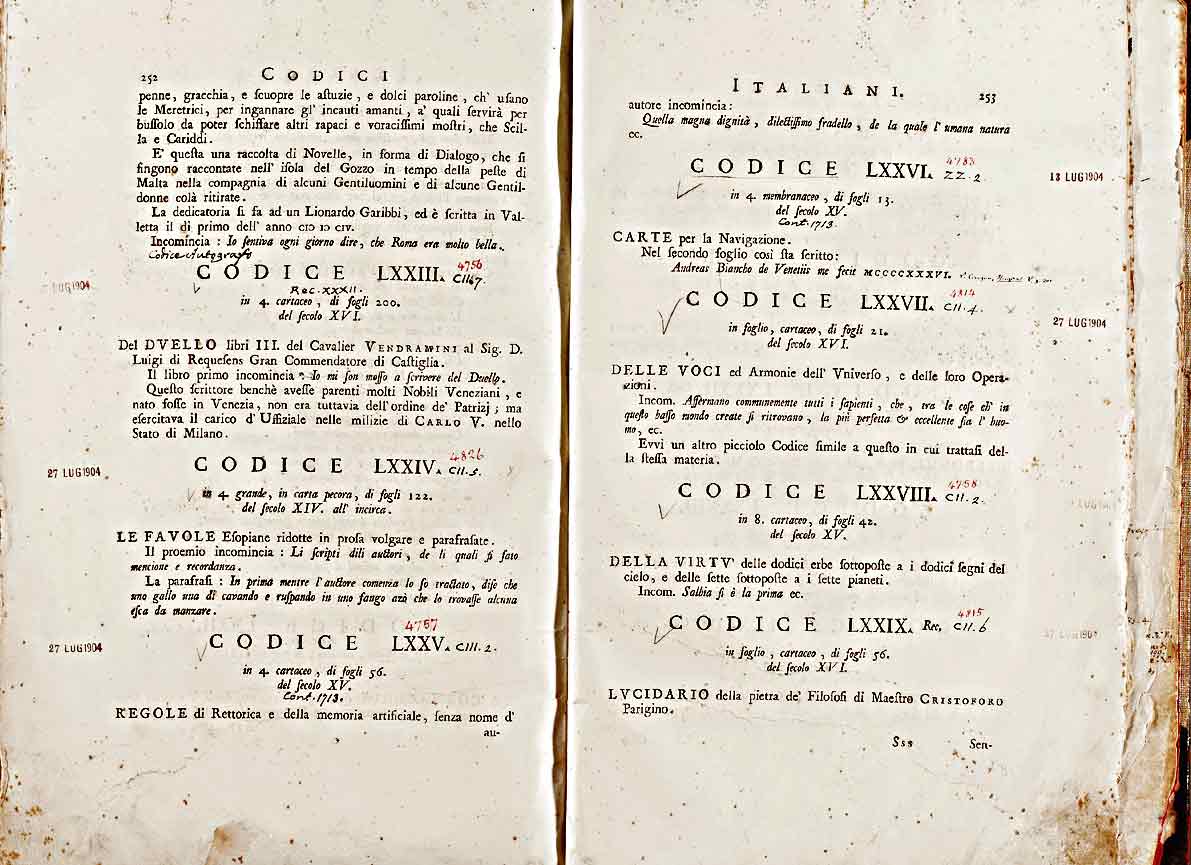 252 CODICI
penne, gracchia, e scuopre le astuzie, e dolci paroline, ch' usano
le Meretrici, per ingannare gl' incauti amanti, a' quali servirà per
bussolo da poter schiffare altri rapaci e voracissimi mostri, che Scil-
la e Cariddi.
E' questa una raccolta di Novelle, in forma di Dialogo, che si
fingono raccontate nell' isola del Gozzo in tempo della peste di
Malta nella compagnia di alcuni Gentiluomini e di alcune Gentil-
donne colà ritirate.
La dedicatoria si fa ad un Lionardo Garibbi, ed è scritta in Val-
letta il dì primo dell' anno CIƆ IƆ CIV.
Incomincia: Io sentiva ogni giorno dire, che Roma era molto bella.
Codice Autografo
CODICE LXXIII. 4756
Rec. XXXII.
in 4. cartaceo, di fogli 200.
del secolo XVI.
LUG1904
Del DVELLO libri III. del Cavalier VENDRAMINI al Sig. D.
Luigi di Requesens Gran Commendatore di Castiglia.
Il libro primo incomincia: Io mi son mosso a scrivere del Duello.
Questo scrittore benchè avesse parenti molti Nobili Veneziani, e
nato fosse in Venezia, non era tuttavia dell'ordine de' Patrizj; ma
esercitava il carico d' Uffiziale nelle milizie di CARLO V. nello
Stato di Milano.
27 LUG1904 CODICE LXXIV. 4826 CII.3.
in 4 grande, in carta pecora, di fogli 122.
del secolo XIV. all' incirca.
LE FAVOLE Esopiane ridotte in prosa volgare e parafrasate.
Il proemio incomincia: Li scripti dili auctori, de li quali si fato
mencione e recordanza.
La parafrasi: In prima mentre l'auctore comenza lo so tractato, dise che
uno gallo una dì cavando e ruspando in uno fango azà che lo trovasse alcuna
esca da manzare.
27 LUG1904 CODICE LXXV. 4757 CIII.2.
in 4. cartaceo, di fogli 56.
del secolo XV.
Cont. 1713.
REGOLE di Rettorica e della memoria artificiale, senza nome d'
au-
ITALIANI. 253
autore incomincia:
Quella magna dignità, dilectissimo fradello, de la quale l' umana natura
ec.
CODICE LXXVI. 4783 ZZ.2 13 LUG1904
in 4. membranaceo, di fogli 13.
del secolo XV.
Cont. 1713.
CARTE per la Navigazione.
Nel secondo foglio così sta scritto:
Andreas Biancho de Venetiis me fecit MCCCCXXXVI.
CODICE LXXVII. 4814 CII.4.
27 LUG1904
in foglio, cartaceo, di fogli 21.
del secolo XVI.
DELLE VOCI ed Armonie dell' Vniverso, e delle loro Opera-
zioni.
Incom. Affermano communemente tutti i sapienti, che, tra le cose ch' in
questo basso mondo create si ritrovano, la più perfetta & eccellente sia l' huo-
mo, ec.
Evvi un altro picciolo Codice simile a questo in cui trattasi del-
la stessa materia.
CODICE LXXVIII. 4758 CII.2.
in 8. cartaceo, di fogli 42.
del secolo XV.
DELLA VIRTV' delle dodici erbe sottoposte a i dodici segni del
cielo, e delle sette sottoposte a i sette pianeti.
Incom. Salbia si è la prima ec.
CODICE LXXIX. Rec. 4815 CII.6
27 LUG1904
in foglio, cartaceo, di fogli 56.
del secolo XVI.
LVCIDARIO della pietra de' Filosofi di Maestro CRISTOFORO
Parigino.
Sss Sen-